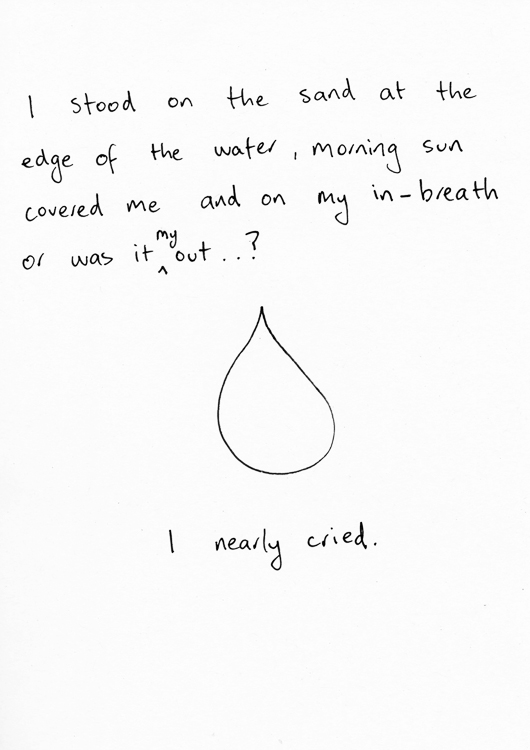 I stood on the sand at the
edge of the water, morning sun
covered me and on my in-breath
or was it my out...?
I nearly cried.